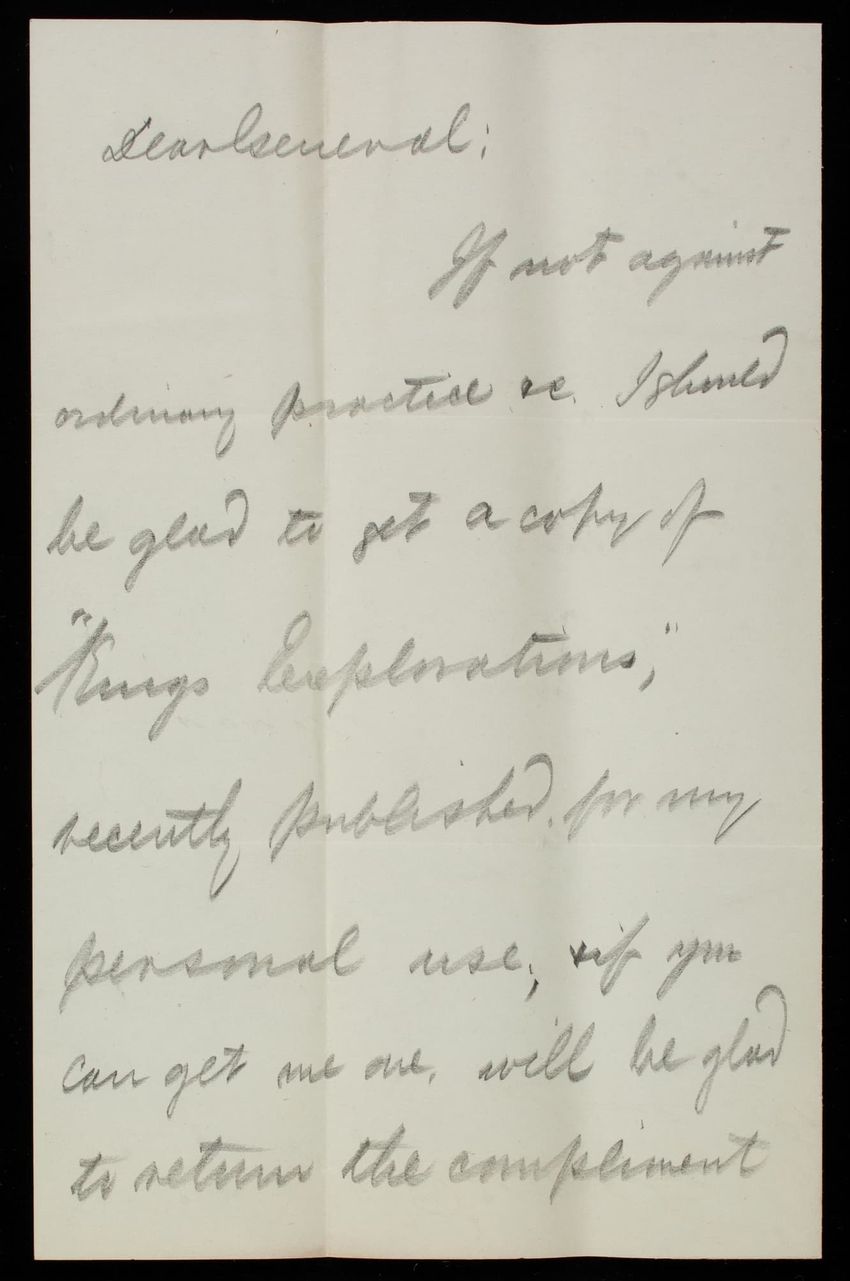 Dear General:
If not against
ordinary practice &c. I should
be glad to get a copy of
"Kings Explorations,"
recently published, for my
personal use, & if you
can get me one, will be glad
to return the compliment